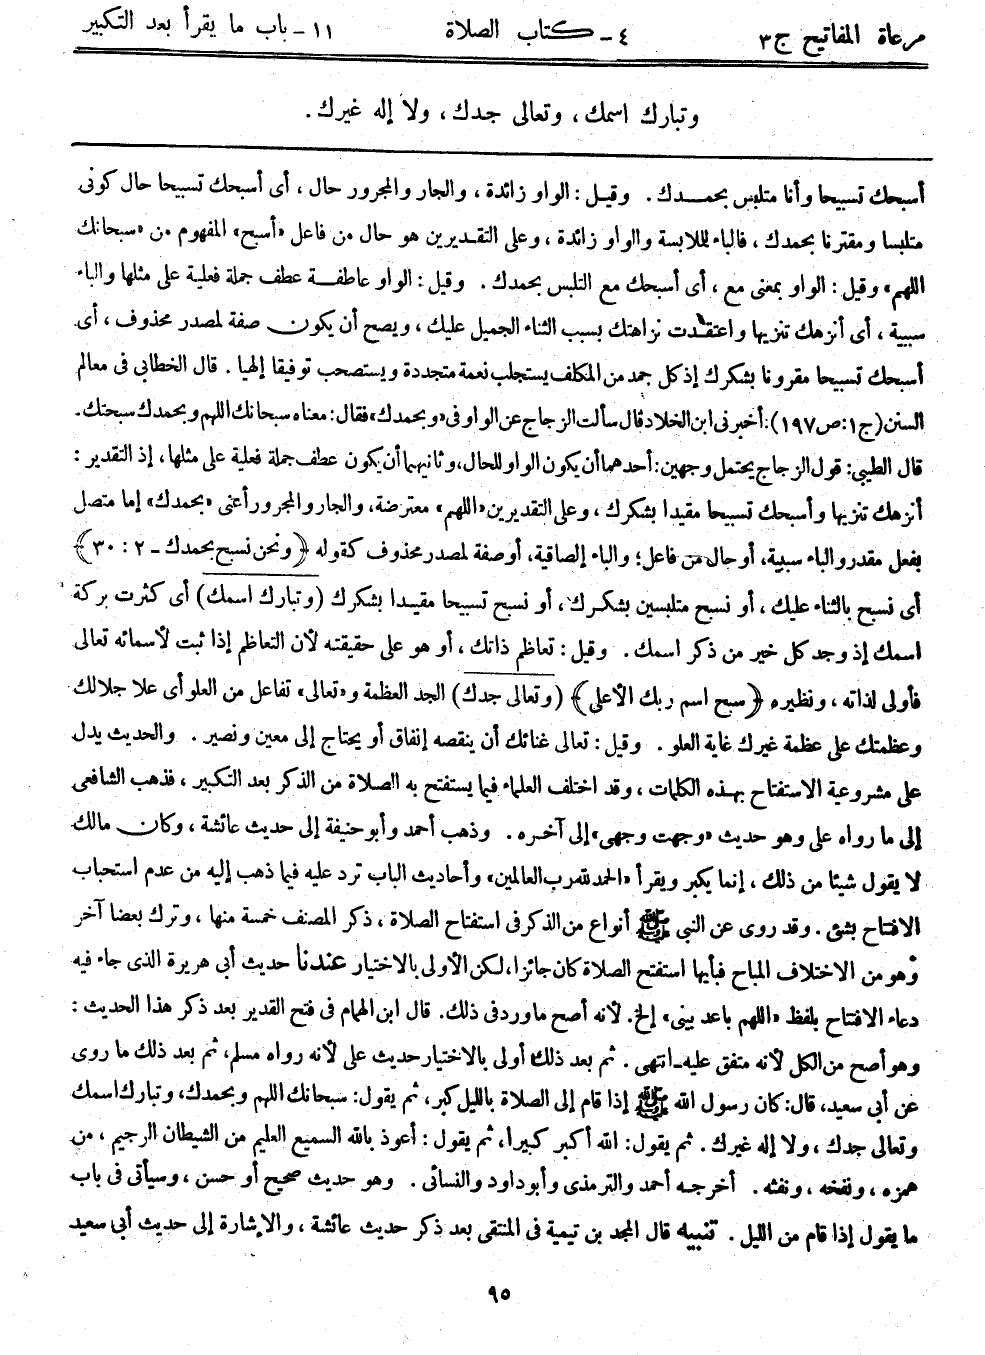 مرعاة المفاتيح ج٣
٤ - كتاب الصلاة
١١ - باب ما يقرأ بعد التكبير
وتبارك اسمك، وتعالى جدك، ولا إله غيرك.
أسبحك تسبيحا وأنا متلبس بحمدك. وقيل: الواو زائدة، والجار والمجرور حال، أى أسبحك تسبيحا حال كونى
متلبسا ومقترنا بحمدك، فالباء للملابسة والواو زائدة، وعلى التقديرين هو حال من فاعل «أسبح» المفهوم من «سبحانك
اللهم» وقيل: الواو بمعنى مع، أى أسبحك مع التلبس بحمدك. وقيل: الواو عاطفة عطف جملة فعلية على مثلها والباء
سببية، أى أنزهك تنزيها واعتقدت نزاهتك بسبب الثناء الجميل عليك، ويصح أن يكون صفة لمصدر محذوف، أى
أسبحك تسبيحا مقرونا بشكرك إذ كل حمد من المكلف يستجلب نعمة متجددة ويستصحب توفيقا إلهيا. قال الخطابى فى معالم
السنن (ج١: ص١٩٧): أخبرنى ابن الخلاد قال سألت الزجاج عن الواو فى «وبحمدك» فقال: معناه سبحانك اللهم وبحمدك سبحتك.
قال الطيبى: قول الزجاج يحتمل وجهين: أحدهما أن يكون الواو للحال، وثانيهما أن يكون عطف جملة فعلية على مثلها، إذ التقدير:
أنزهك تنزيها وأسبحك تسبيحا مقيدا بشكرك، وعلى التقديرين «اللهم» معترضة، والجار والمجرور أعنى «بحمدك» إما متصل
بفعل مقدر والباء سببية، أو حال من فاعل؛ والباء إلصاقية، أو صفة لمصدر محذوف كقوله ﴿ونحن نسبح بحمدك - ٢: ٣٠﴾
أى نسبح بالثناء عليك، أو نسبح متلبسين بشكرك، أو نسبح تسبيحا مقيدا بشكرك (وتبارك اسمك) أى كثرت بركة
اسمك إذ وجد كل خير من ذكر اسمك. وقيل: تعاظم ذاتك، أو هو على حقيقته لأن التعاظم إذا ثبت لأسمائه تعالى
فأولى لذاته، ونظيره ﴿سبح اسم ربك الأعلى﴾ (وتعالى جدك) الجد العظمة و«تعالى» تفاعل من العلو أى علا جلالك
وعظمتك على عظمة غيرك غاية العلو. وقيل: تعالى غنائك أن ينقصه إنفاق أو يحتاج إلى معين ونصير. والحديث يدل
على مشروعية الاستفتاح بهذه الكلمات، وقد اختلف العلماء فيما يستفتح به الصلاة من الذكر بعد التكبير، فذهب الشافعى
إلى ما رواه على وهو حديث «وجهت وجهى» إلى آخره. وذهب أحمد وأبو حنيفة إلى حديث عائشة، وكان مالك
لا يقول شيئا من ذلك، إنما يكبر ويقرأ «الحمد لله رب العالمين» وأحاديث الباب ترد عليه فيما ذهب إليه من عدم استحباب
الافتتاح بشئ. وقد روى عن النبى ﷺ أنواع من الذكر فى استفتاح الصلاة، ذكر المصنف خمسة منها، وترك بعضا آخر
وهو من الاختلاف المباح فبأيها استفتح الصلاة كان جائزا، لكن الأولى بالاختيار عندنا حديث أبى هريرة الذى جاء فيه
دعاء الافتتاح بلفظ «اللهم باعد بينى» إلخ. لأنه أصح ما ورد فى ذلك. قال ابن الهمام فى فتح القدير بعد ذكر هذا الحديث:
وهو أصح من الكل لأنه متفق عليه - انتهى. ثم بعد ذلك أولى بالاختيار حديث على لأنه رواه مسلم، ثم بعد ذلك ما روى
عن أبى سعيد، قال: كان رسول الله ﷺ إذا قام إلى الصلاة بالليل كبر، ثم يقول: سبحانك اللهم وبحمدك، وتبارك اسمك
وتعالى جدك، ولا إله غيرك. ثم يقول: الله أكبر كبيرا، ثم يقول: أعوذ بالله السميع العليم من الشيطان الرجيم، من
همزه، ونفخه، ونفثه. أخرجه أحمد والترمذى وأبو داود والنسائى. وهو حديث صحيح أو حسن، وسيأتى فى باب
ما يقول إذا قام من الليل. تنبيه قال المجد بن تيمية فى المنتقى بعد ذكر حديث عائشة، والإشارة إلى حديث أبى سعيد
٩٥